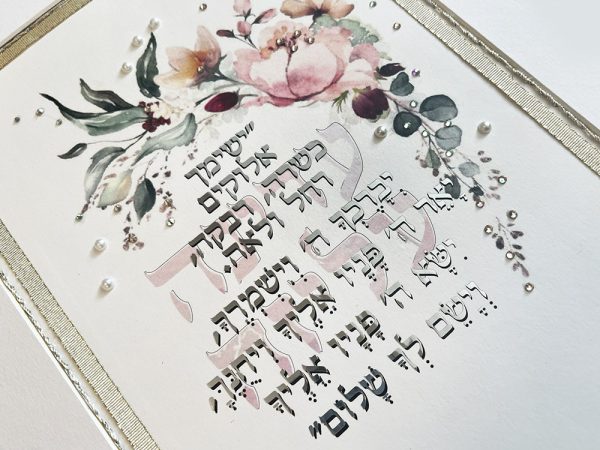 "ישימך
אלוקים
כשרה, רבקה,
רחל ולאה.
יְבָרֶכְךָ ה' וְיִשְׁמְרֶךָ,
יָאֵר ה' פָּנָיו אֵלֶיךָ וִיחֻנֶּךָּ,
יִשָּׂא ה' פָּנָיו אֵלֶיךָ
וְיָשֵׂם לְךָ שָׁלוֹם"